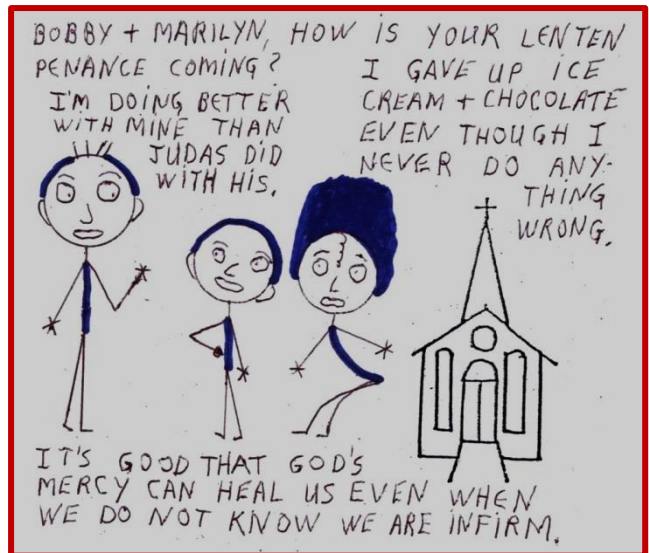 BOBBY + MARILYN, HOW IS YOUR LENTEN
PENANCE COMING?
I'M DOING BETTER
WITH MINE THAN
JUDAS DID
WITH HIS.
I GAVE UP ICE
CREAM + CHOCOLATE
EVEN THOUGH I
NEVER DO ANY-
THING
WRONG.
IT'S GOOD THAT GOD'S
MERCY CAN HEAL US EVEN WHEN
WE DO NOT KNOW WE ARE INFIRM.